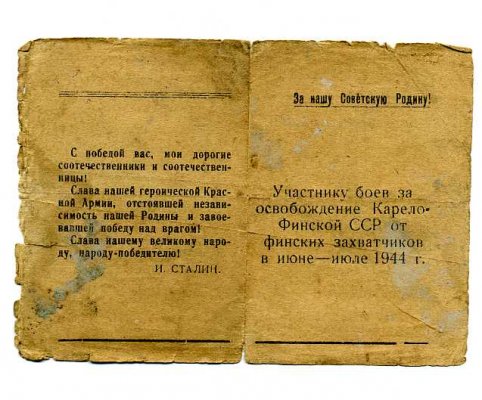 С победой вас, мои дорогие
соотечественники и соотечествен-
ницы!
Слава нашей героической Крас-
ной Армии, отстоявшей незави-
симость нашей Родины и завое-
вавшей победу над врагом!
Слава нашему великому наро-
ду, народу-победителю!
И. СТАЛИН.
За нашу Советскую Родину!
Участнику боев за
освобождение Карело-
Финской ССР от
финских захватчиков
в июне—июле 1944 г.